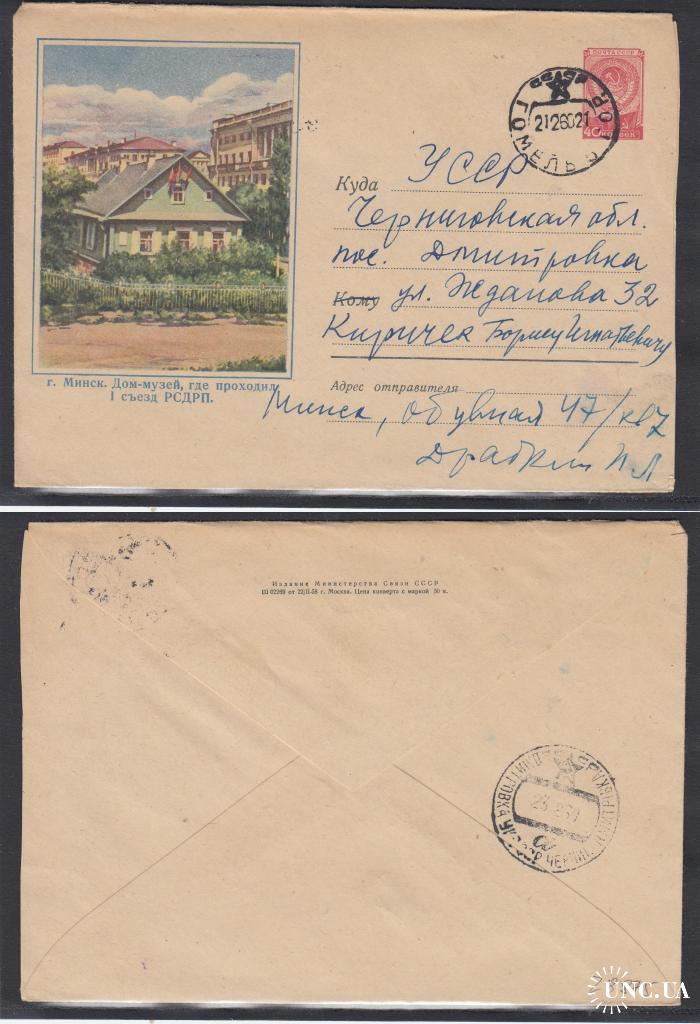 ПОЧТА СССР
40 КОПЕЕК
СССР
ГОМЕЛЬ 5
2126021
Куда УССР
Черниговская обл.
пос. Дмитровка
Кому ул. Жданова 32
Киричек Борису Игнатьевичу
г. Минск. Дом-музей, где проходил
I съезд РСДРП.
Адрес отправителя
Минск, Обувная 47/кв7
Драбкин И Л
Издание Министерства Связи СССР
Ш 02269 от 22/II-58 г. Москва. Цена конверта с маркой 50 к.
ДМИТРОВКА
UNC.UA